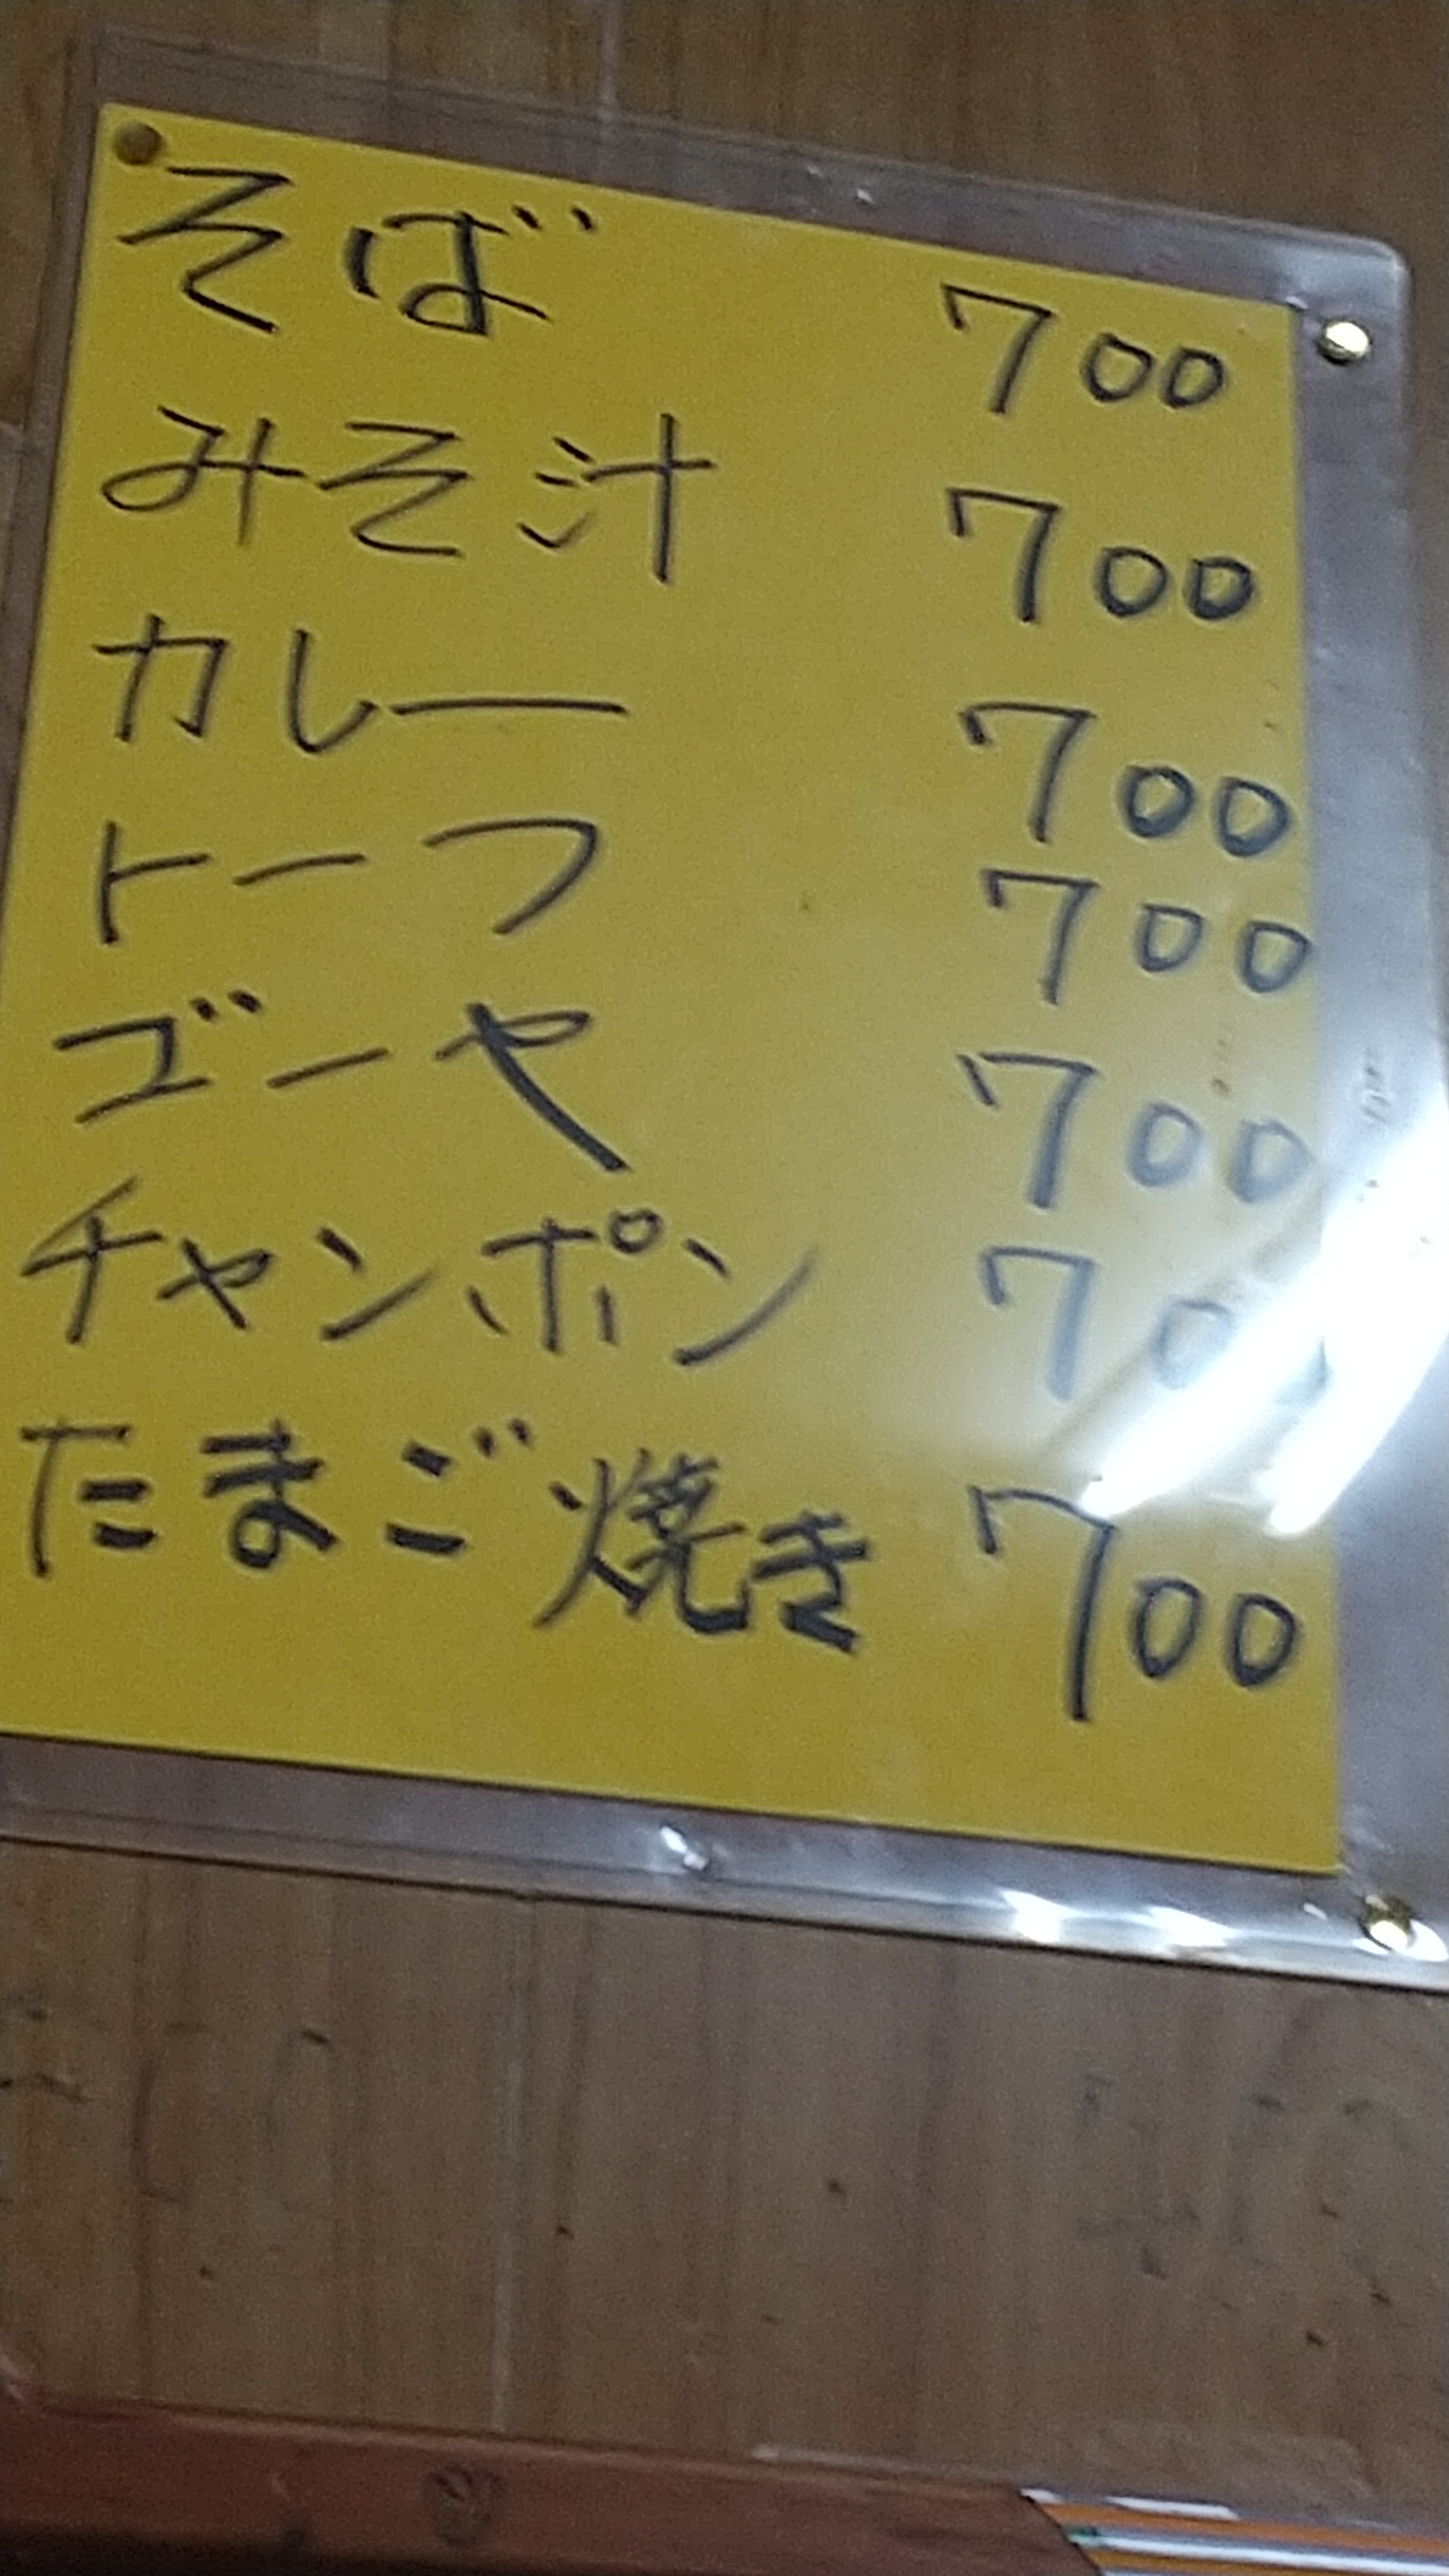 そば 700
みそ汁 700
カレー 700
トーフ 700
ゴーヤ 700
チャンポン 700
たまご焼き 700